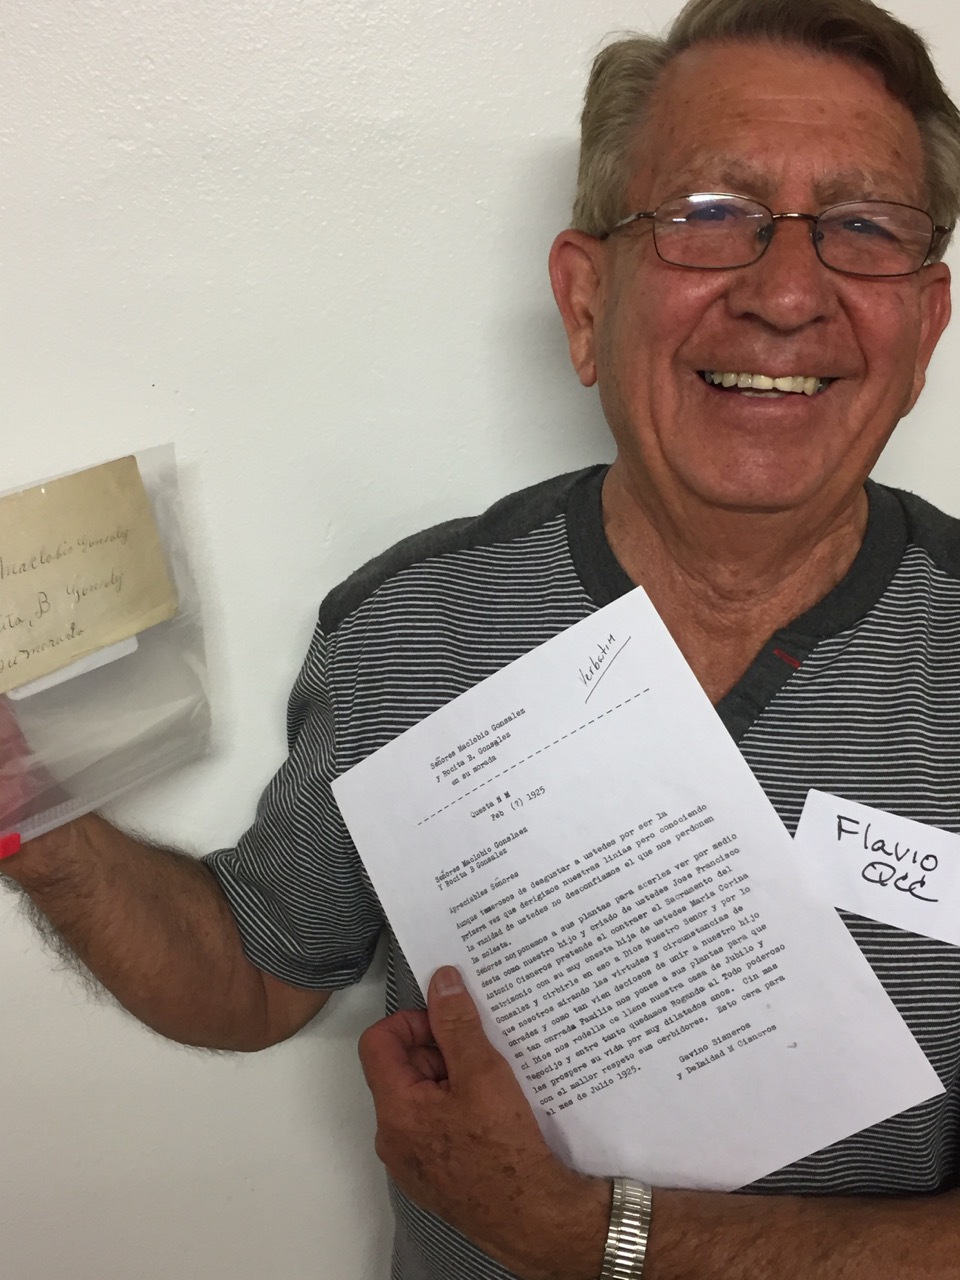 Anaclobio Gonzalez
ita, B Gonzalez
su morada
Verbatim
Señores Maclobio Gonsalez
y Rocita B. Gonsalez
en su morada
Questa N M
Feb (?) 1925
Señores Maclobio Gonsalez
y Rocita B Gonsalez
Apreciables Señores
Aunque temerosos de desgustar a ustedes por ser la
primera vez que derigimos nuestras linias pero conociendo
la vanidad de ustedes no desconfiamos el que nos perdonen
la molesta.
Señores noj ponemos a sus plantas para acerles ver por medio
desta como nuestro hijo y criado de ustedes Jose Francisco
Antonio Cisneros pretende el contraer el Sacramento del
matrimonio con su muy onesta hija de ustedes Maria Corina
Gonsalez y cirbirle en eso a Dios Nuestro Senor y por lo
que nosotros mirando las virtudes y circunstancias de
onradez y como tan vien deciosos de unir a nuestro hijo
en tan onrrada Familia nos pones a sus plantas para que
ci Dios nos rodella ce llene nuestra casa de Jubilo y
Regocijo y entre tanto quedamos Rogando al Todo poderoso
les prospere su vida por muy dilatados anos. Cin mas
con el mallor respeto sus cerbidores. Esto cera para
el mes de Julio 1925.
Gavino Sisneros
y Delaidad M Cisneros
Flavio
QCC